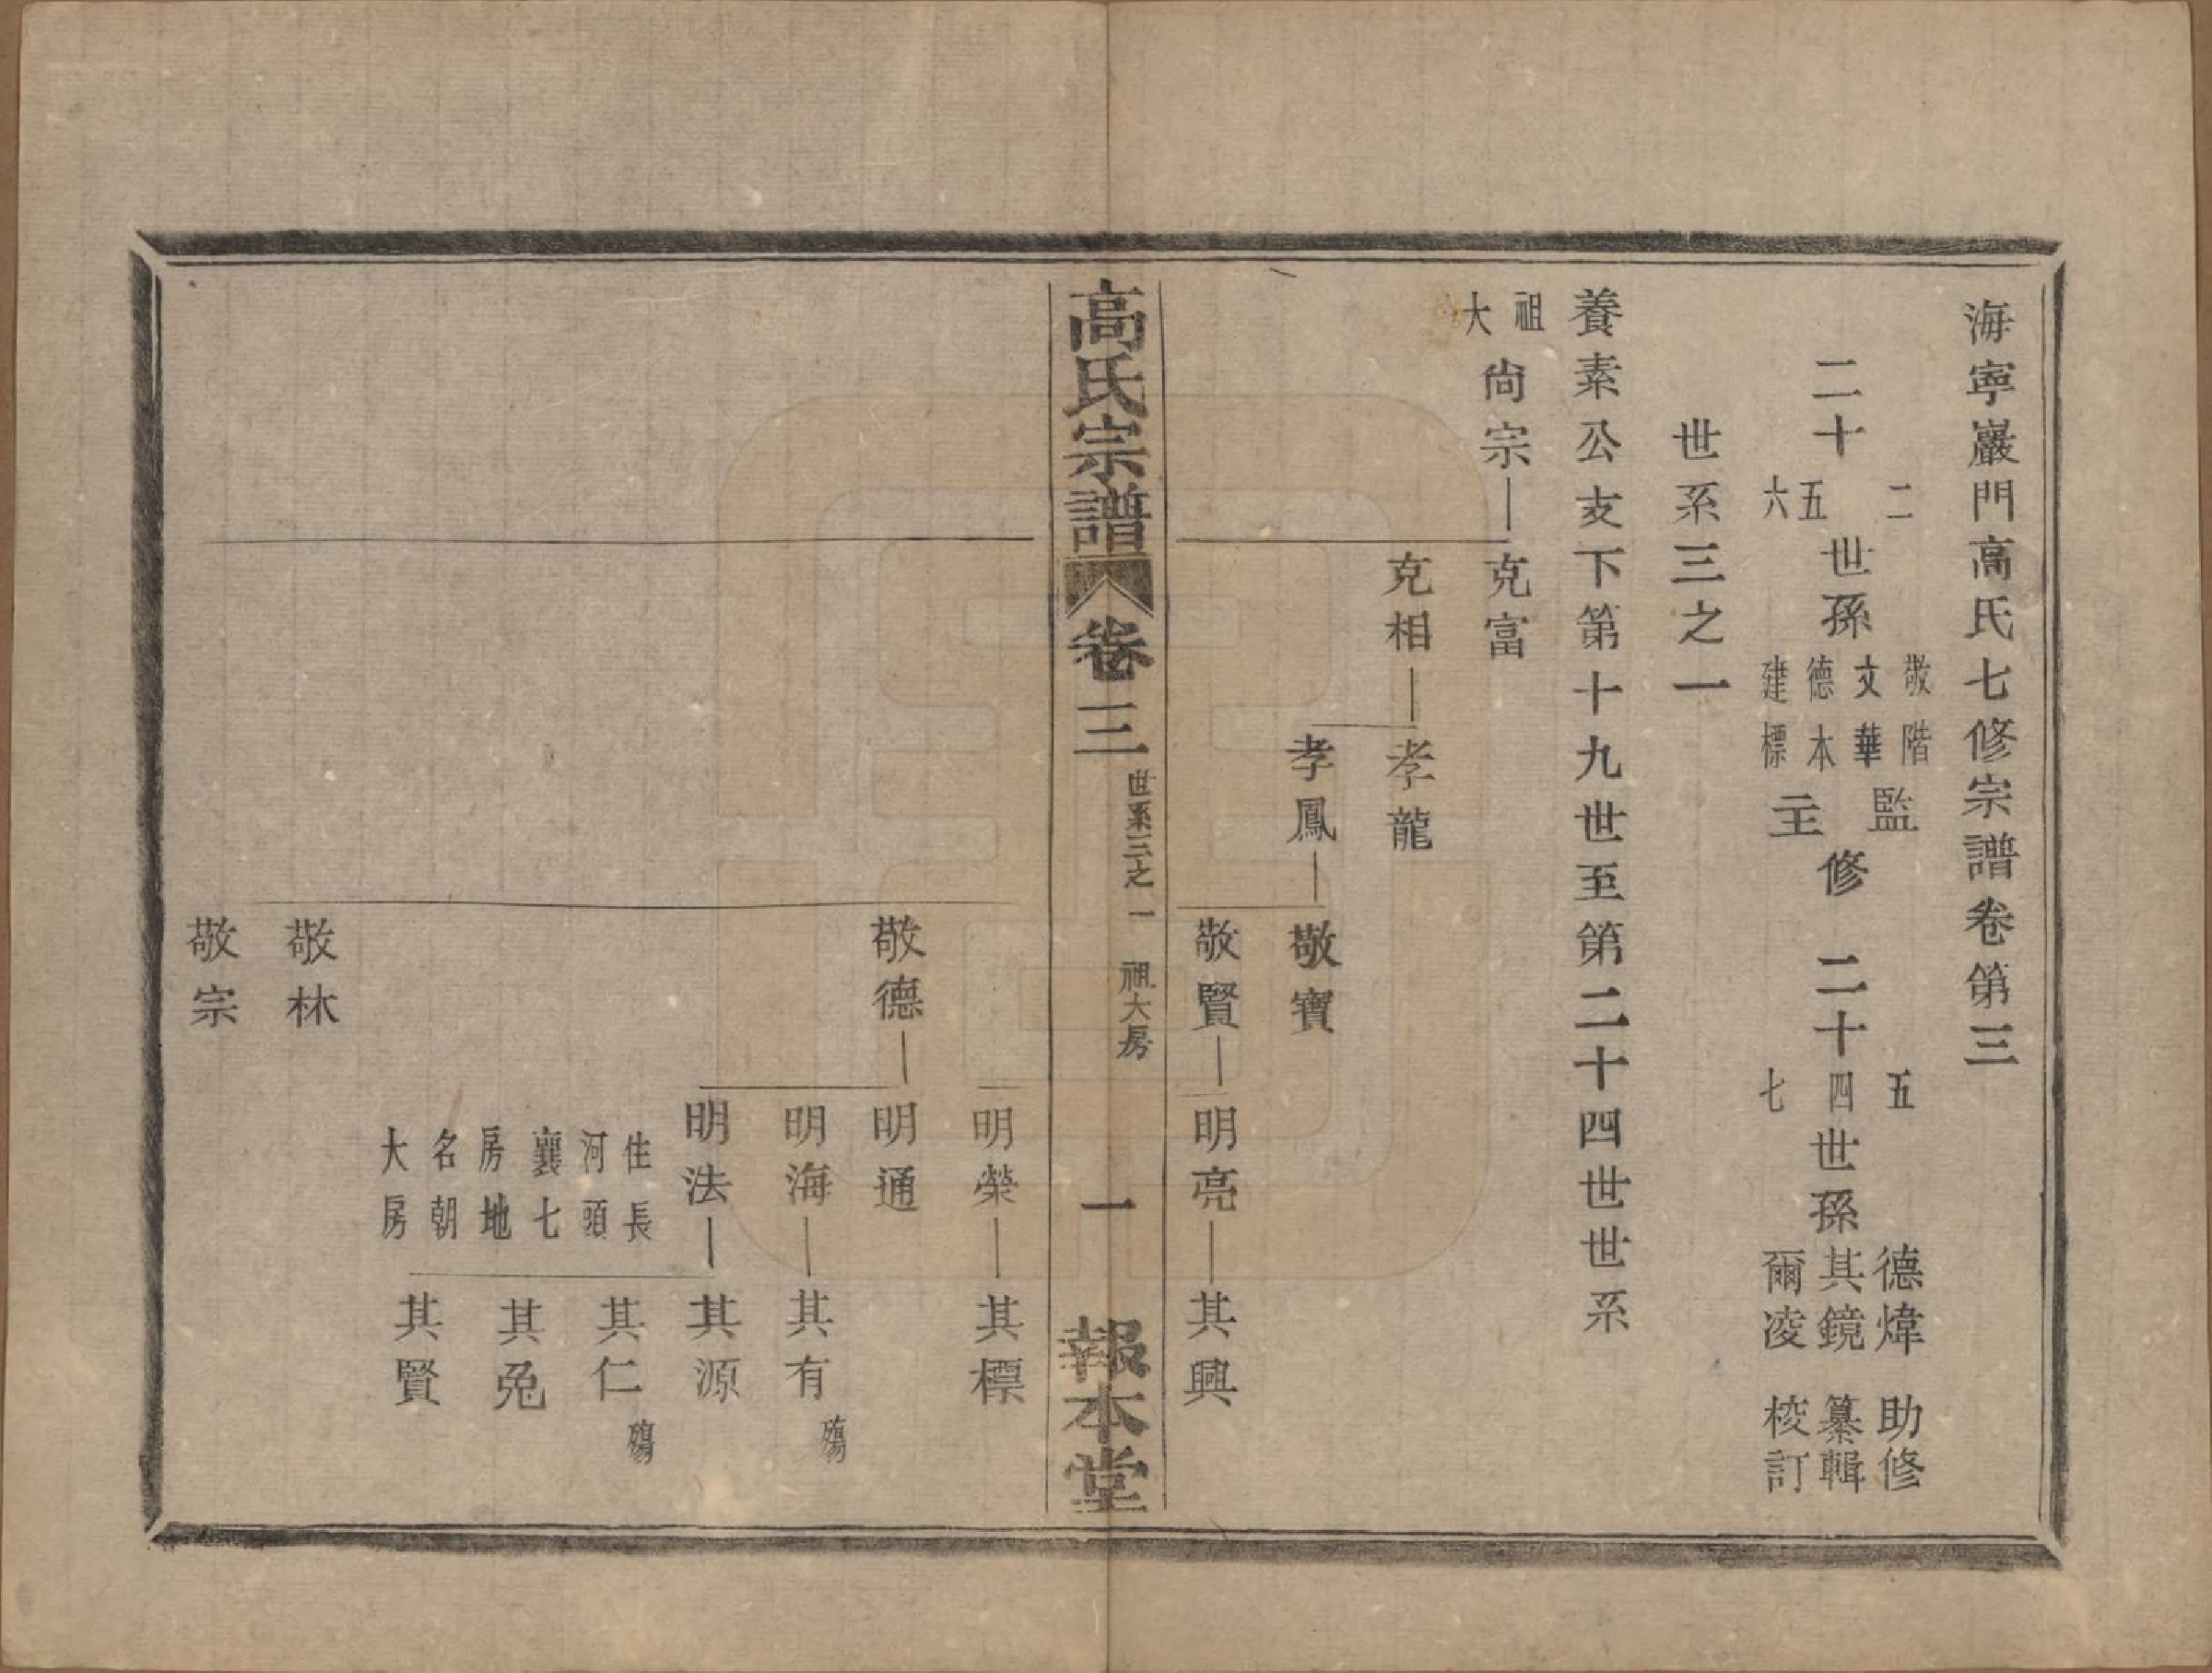 海寧巖門高氏七修宗譜卷第三
二十
二
五
六
世孫
敬階
文華
德本
建標
監
主
修
二十
五
四
七
世孫
德煒
其鏡
爾凌
助修
纂輯
校訂
世系三之一
養素公支下第十九世至第二十四世世系
祖
大
尙宗
克富
克相
孝龍
孝鳳
敬寶
敬賢
明亮
其興
高氏宗譜
卷三
世系三之一
祖大房
一
報本堂
明榮
其標
敬德
明通
明海
其有
殤
明法
其源
住長
河頭
襄七
房地
名朝
大房
其仁
殤
其免
其賢
敬林
敬宗